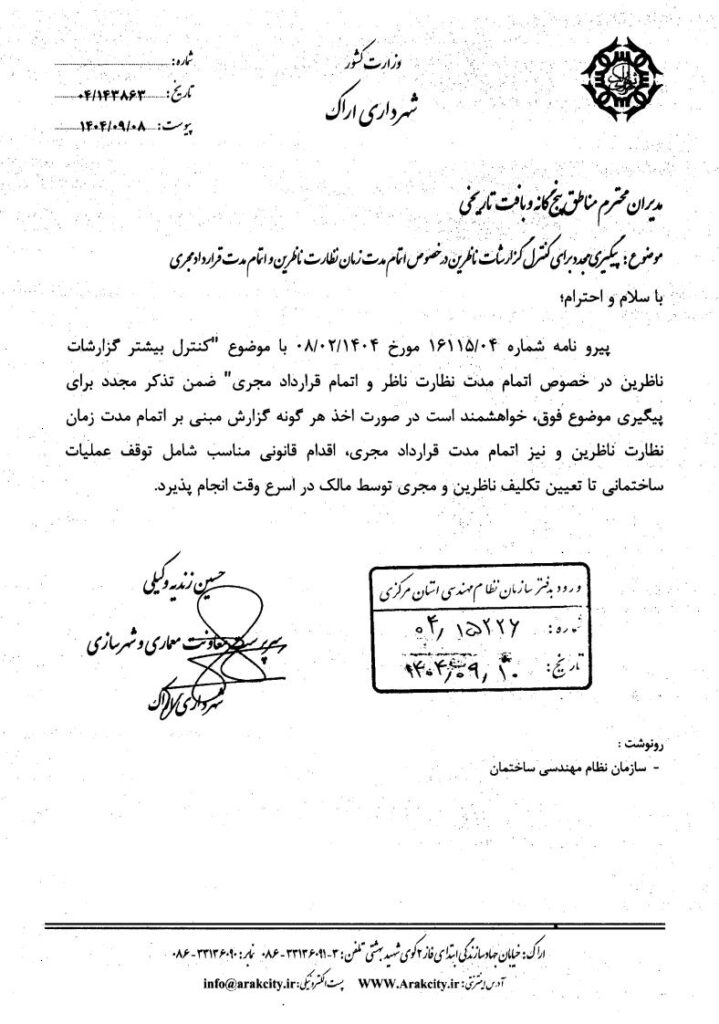 وزارت کشور
شهرداری اراک
شماره:
تاریخ: ۰۴/۱۴۳۸۶۳
پیوست: ۱۴۰۴/۰۹/۰۸
مدیران محترم مناطق پنج گانه و بافت تاریخی
موضوع: پیگیری مجدد برای کنترل گزارشات ناظرین درخصوص اتمام مدت زمان نظارت ناظرین و اتمام مدت قرارداد مجری
با سلام و احترام؛
پیرو نامه شماره ۱۶۱۱۵/۰۴ مورخ ۰۸/۰۲/۱۴۰۴ با موضوع "کنترل بیشتر گزارشات
ناظرین در خصوص اتمام مدت نظارت ناظر و اتمام قرارداد مجری" ضمن تذکر مجدد برای
پیگیری موضوع فوق، خواهشمند است در صورت اخذ هر گونه گزارش مبنی بر اتمام مدت زمان
نظارت ناظرین و نیز اتمام مدت قرارداد مجری، اقدام قانونی مناسب شامل توقف عملیات
ساختمانی تا تعیین تکلیف ناظرین و مجری توسط مالک در اسرع وقت انجام پذیرد.
حسین زندیه وکیلی
سرپرست معاونت معماری و شهرسازی
شهرداری اراک
ورود به دفتر سازمان نظام مهندسی استان مرکزی
شماره: ۰۴/۱۵۲۲۶
تاریخ: ۱۴۰۴/۰۹/۱۰
رونوشت :
- سازمان نظام مهندسی ساختمان
اراک: خیابان جهاد سازندگی ابتدای فاز ۲ کوی شهید بهشتی تلفن: ۳-۳۳۱۳۶۰۹۱-۰۸۶ نمابر: ۳۳۱۳۶۰۹۰-۰۸۶
آدرس اینترنتی: WWW.Arakcity.ir پست الکترونیکی: info@arakcity.ir